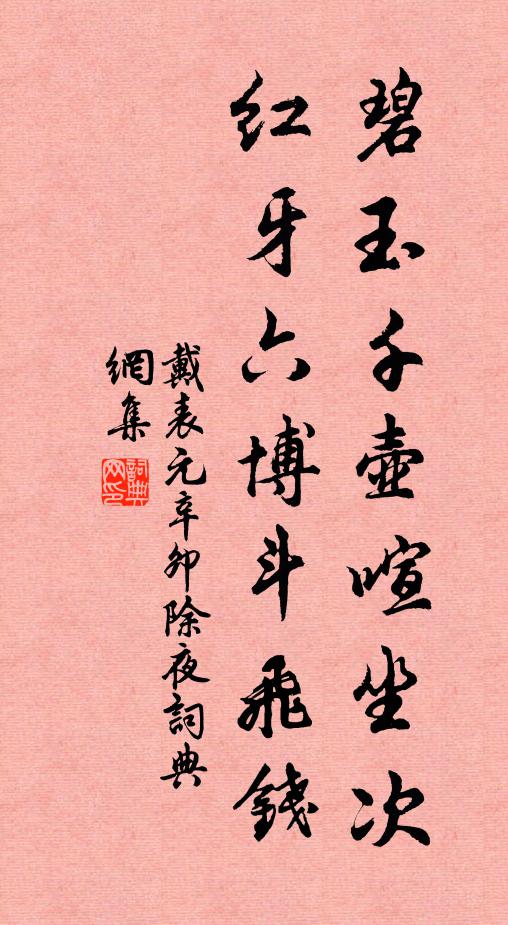 碧玉千壺喧坐次
紅牙六博斗飛錢
戴表元辛卯除夜詞典
網集
詞典網印